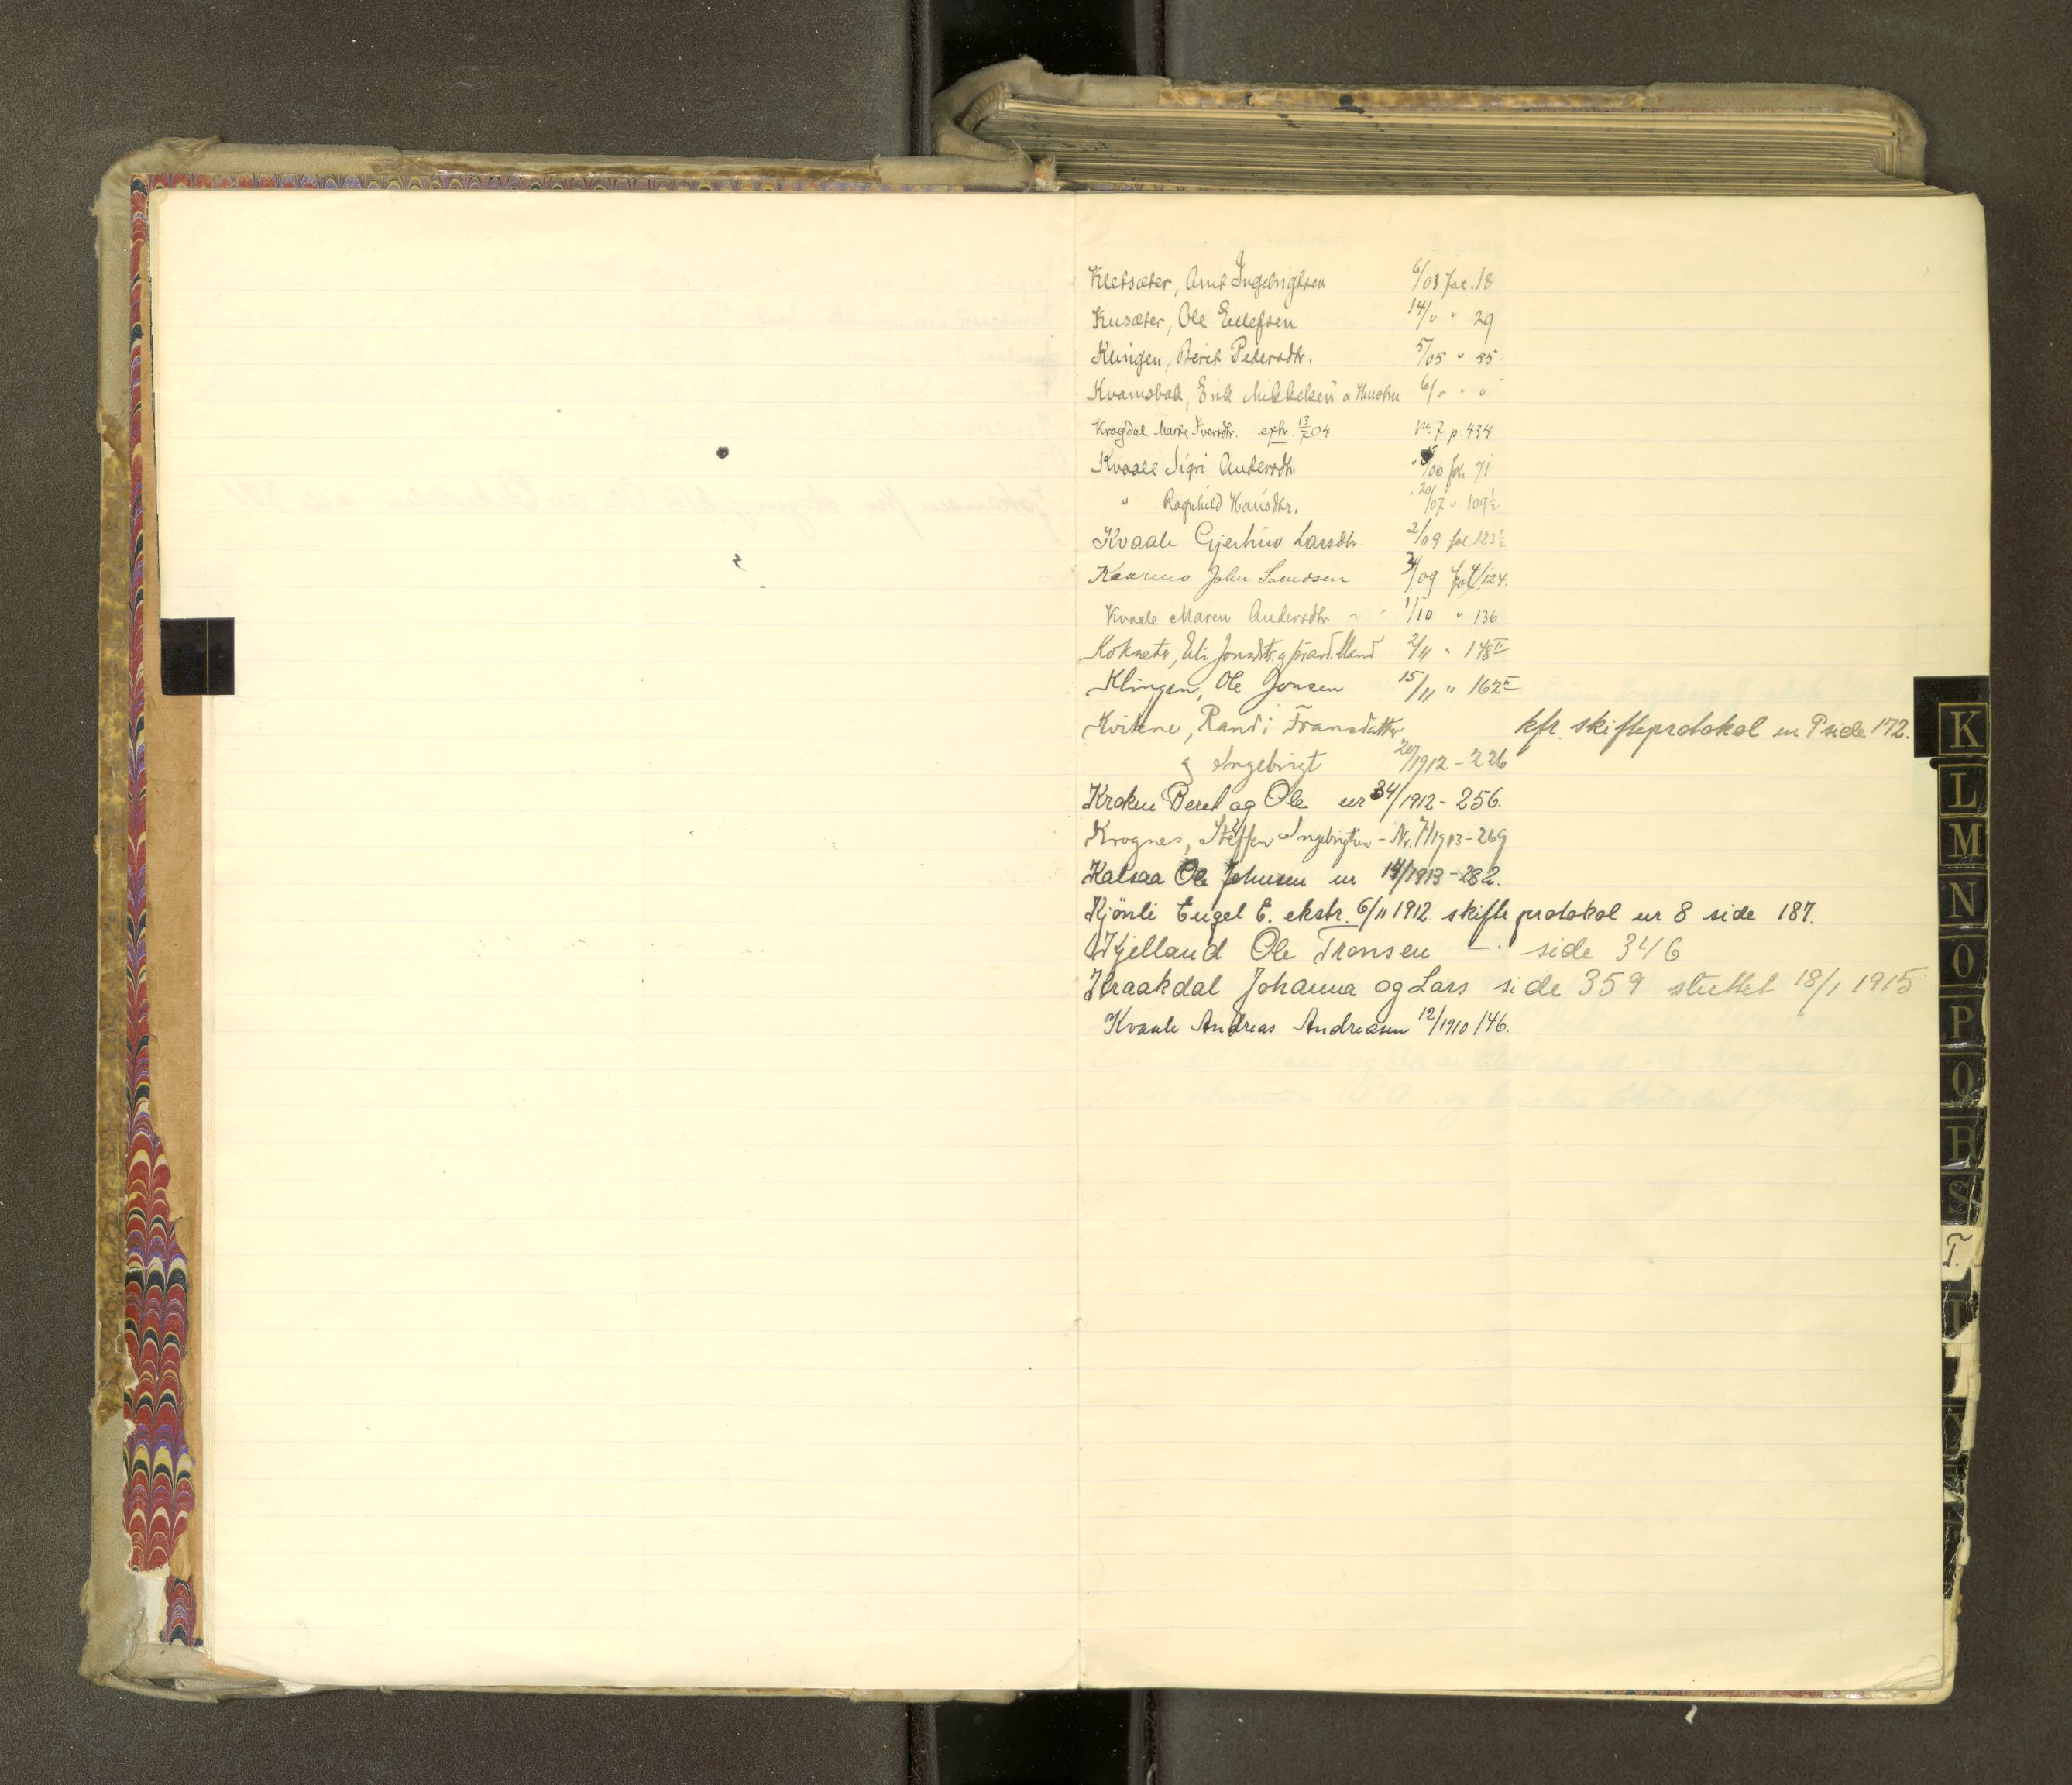 Kletsæter, Arnt Ingebrigtsen 6/03 fol. 18
Kusæter, Ole Ellefsen 14/" " 29
Klingen, Berit Pedersdtr. 5/05 " 55
Kvamsbak, Erik Mikkelsen o Hustru 6/" " "
Krogdal Marte Iversdtr. extr. 13/7 04 nr. 7 p. 434
Kvaale Sigri Andersdtr. /06 fol. 71
" Ragnhild Hansdtr. 20/07 " 109½
Kvaale Gjertru Larsdtr. 2/09 fol. 123½
John Svendsen /09 fol 124.
Kvaale Maren Andersdtr 1/10 " 136
Koksetr, Eli Jonsdtr. g 2/11 " 148 II
Klingen, Ole Jonsen 15/11 " 162 II
Kvitene, Randi Fransdatter kfr. skifteprotokol nr 9 side 172.
g Ingebrigt 20/1912 - 226
Kroken Beret og Ole nr 34/1912 - 256.
Krognes, Steffen Ingebrigtsen - Nr. 7/1913 - 269
Kalsaa Ole Johnsen nr 14/1913 - 282.
Kjönli Engel E. ekstr. 6/11 1912 skifteprotokol nr 8 side 187.
Kjelland Ole Tronsen - side 346
Kraakdal Johanna og Lars side 359 sluttet 18/1 1915
Kvaale Andreas Andreasen 12/1910 146.
K
L
M
N
O
P
Q
R
S
T.